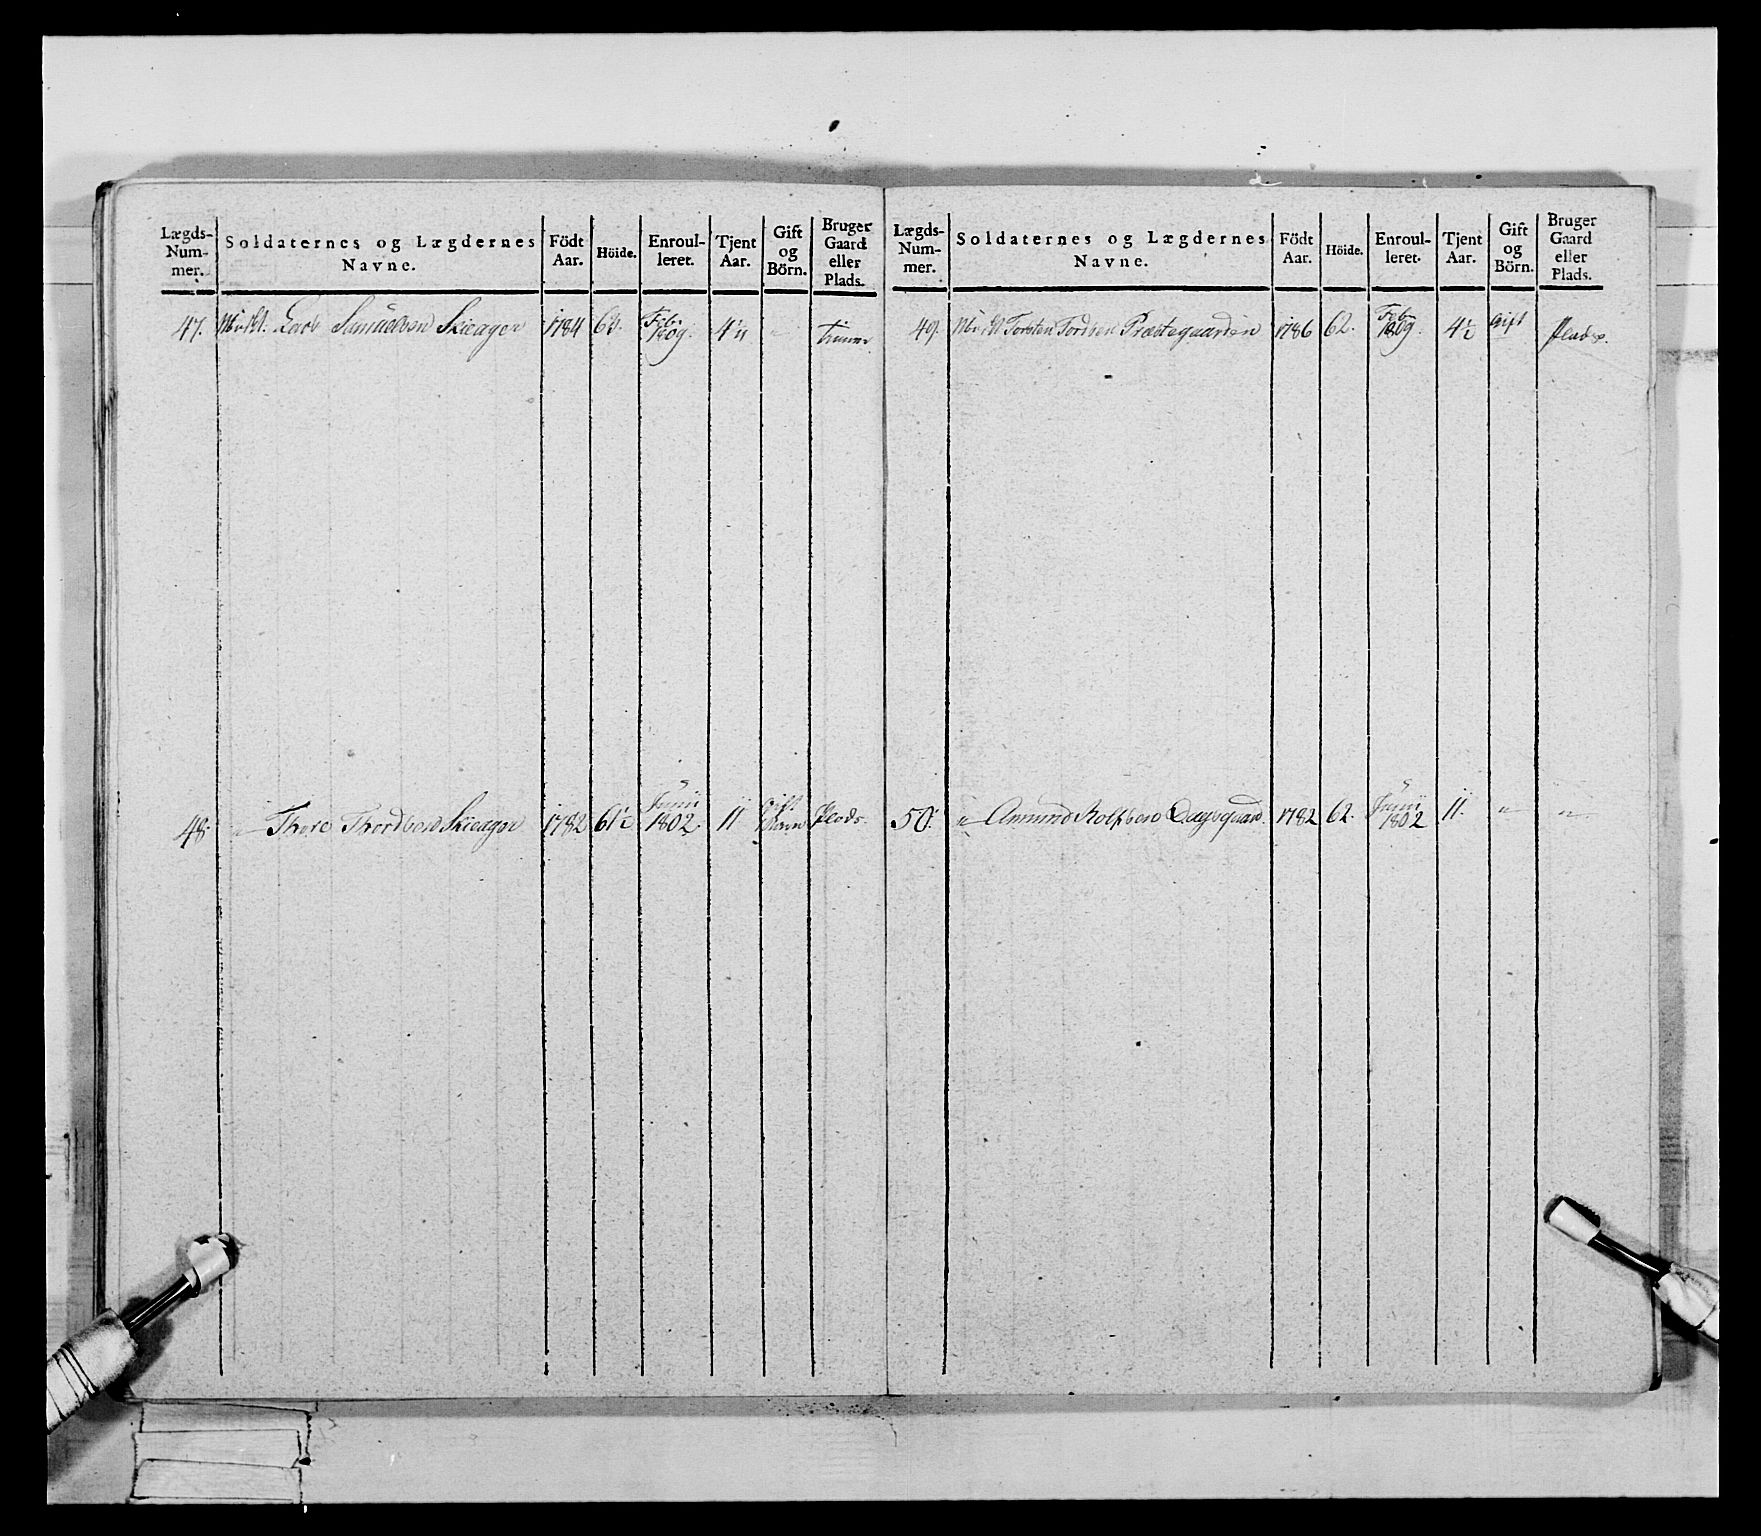 Lægds-Num-mer. Soldaternes og Lægdernes Navne. Födt Aar. Höide. Enroul-leret. Tjent Aar. Gift og Börn. Bruger Gaard eller Plads.
47. Samuelsen Skieager 1784 63. Feb. 1809. 4½
48. " Thore Thordsen Skieager 1782 61½ Junii 1802 11 Gift Plads.
Lægds-Num-mer. Soldaternes og Lægdernes Navne. Födt Aar. Höide. Enroul-leret. Tjent Aar. Gift og Börn. Bruger Gaard eller Plads.
49. Torsten Tordsen Præstegaarden 1786 62. Feb. 1809. 4½ Gift Plads.
50. " Amund Rolfsen 1782 62. Junii 1802 11. " "